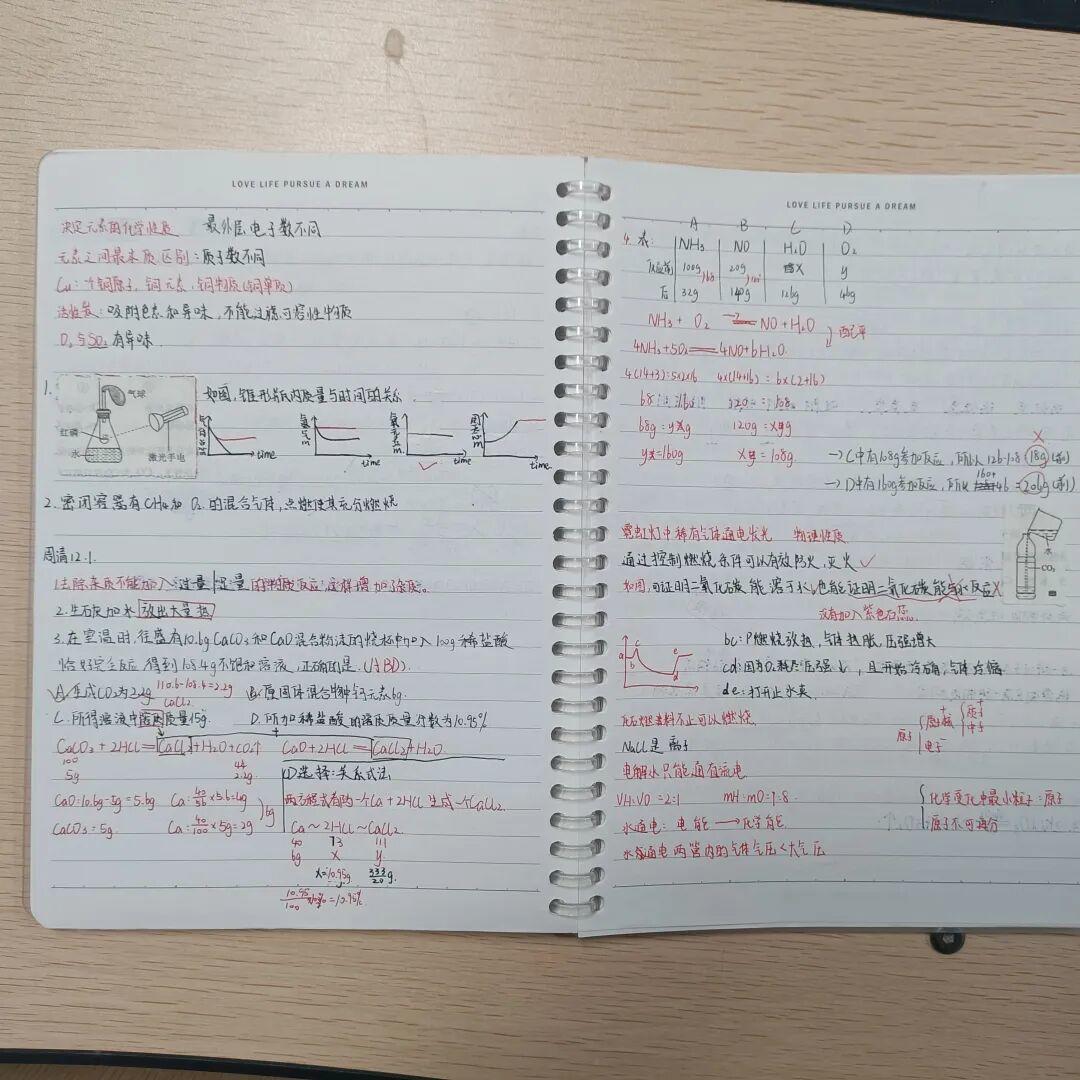 LOVE LIFE PURSUE A DREAM
决定元素的化学性质 最外层电子数不同
元素之间最本质区别:质子数不同
Cu:个铜原子,铜元素,铜物质(铜单质)
活性炭:吸附色素和异味,不能过滤可容性物质
O₂与SO₂有异味
1.
气球
红磷
水
激光手电
如图,锥形瓶内质量与时间的关系
time
time
time
time
2.密闭容器有CH₄和O₂的混合气体,点燃使其充分燃烧
周清12.1.
1.去除杂质不能加入过量/足量的物质反应,这样增加杂质。
2.生石灰加水放出大量热
3.在室温时,往盛有10.6g CaCO₃和CaO混合物流的烧杯中加入100g稀盐酸
恰好完全反应,得到108.4g不饱和溶液,正确的是(ABD).
A.生成CO₂为2.2g 110.6-108.4=2.2g B.原固体混合物种钙元素6g.
CaCl₂
C.所得溶液中溶质质量15g. D.所加稀盐酸的溶质质量分数为10.95%
CaCO₃+2HCl=CaCl₂+H₂O+CO₂↑ CaO+2HCl=CaCl₂+H₂O.
100 44
5g 2.2g
CaO:10.6g-5g=5.6g Ca:40/56×5.6=4g 6g
CaCO₃=5g Ca:40/100×5g=2g
①选择:关系式法
两方程式有的一个Ca+2HCl生成一个CaCl₂.
Ca~2HCl~CaCl₂
40 73 111
6g x y
x=10.95g 333/20 g.
10.95/100 ×100%=10.95%
LOVE LIFE PURSUE A DREAM
A B C D
4.表: NH₃ NO H₂O O₂
反应前 100g 20g X y
后 32g 140g 126g 46g
NH₃+O₂ → NO+H₂O
配平
4NH₃+5O₂=4NO+6H₂O.
4(14+3):5×2×16 4×(14+16):6×(2+16)
68:160 120:108
68g:y g 120g:x g
y=160g x=108g
→C中有108g参加反应,所以126-108=18g(前) X
→D中有160g参加反应,所以160+46=206g(前)
霓虹灯中稀有气体通电发光 物理性质
通过控制燃烧条件可以有效防火,灭火✓
如图,可证明二氧化碳能溶于水,也能证明二氧化碳能与水反应X
没有加入紫色石蕊
水
CO₂
a b c d e
bc:P燃烧放热,气体热胀,压强增大
cd:因为O₂耗尽压强↓,且开始冷确,气体冷缩
de:打开止水夹
化石燃料不止可以燃烧
NaCl是离子
原子 原子核 质子 中子 电子
电解水只能通直流电
VH:VO=2:1 mH:mO=1:8
水通电:电能→化学能
化学变化中最小粒子:原子
原子不可再分
水通电两管内的气体气压<大气压